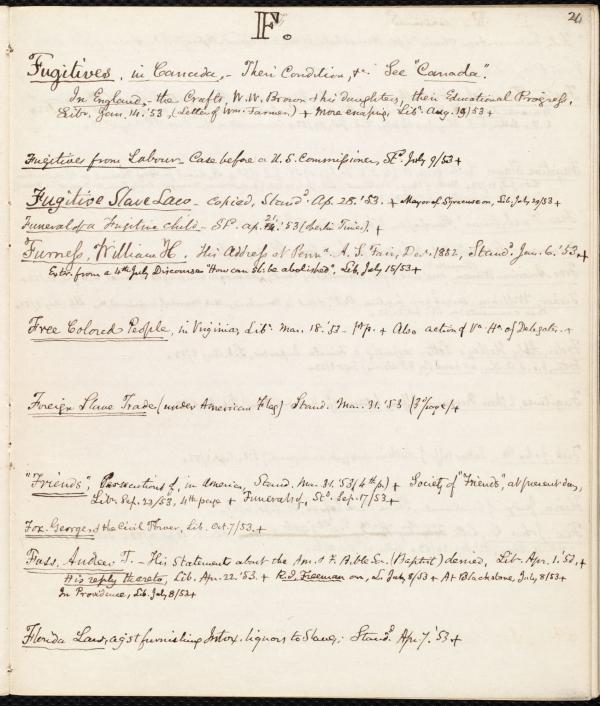 24
F.
Fugitives, in Canada, - Their Condition, &c. See "Canada".
In England, - the Crafts, W. W. Brown & his daughters, their Educational Progress,
Libr. Jan. 14. '53, (Letter of Wm. Farmer) + More escaping, Libr. Aug. 19/53 +
Fugitives from Labour Case before a U. S. Commissioner, Std. July 9/53 +
Fugitive Slave Law - copied, Standd. Ap. 28. '53. + Mayor of Syracuse on, Lib. July 29/53 +
Funeral of a Fugitive Child - Std. Ap. '53 (Oberlin Times). +
Furness, William H. His Address at Penna. A. S. Fair, Dec. 1852, Standd. Jan. 6. '53. +
Extr. from a 4th July Discourse "How can Sl. be abolished". Lib. July 15/53 +
Free Colored People, in Virginia, Libr. Mar. 18. '53 - 1st p. + Also action of Va. Hs. of Delegates. +
Foreign Slave Trade (under American Flag) Stand. Mar. 31. '53 (3d page) +
"Friends", Persecutions of, in America, Stand. Mar. 31. '53 (4th p.) + Society of "Friends", at present day,
Libr. Sep. 23/53, 4th page + Funerals of, Std. Sep. 17/53 +
Fox. George, & the Civil Power, Lib. Oct. 7/53. +
Foss, Andrew T. - His Statements about the Am. & F. Bible Soc. (Baptist) denied, Lib. Apr. 1. '53. +
His reply thereto, Lib. Apr. 22. '53. + R. I. Freeman on, Lib. July 8/53 + At Blackstone, July 8/53 +
In Providence, Lib. July 8/53 +
Florida Law, agst furnishing Intox. liquors to Slaves; Standd. Apr. 7. '53 +